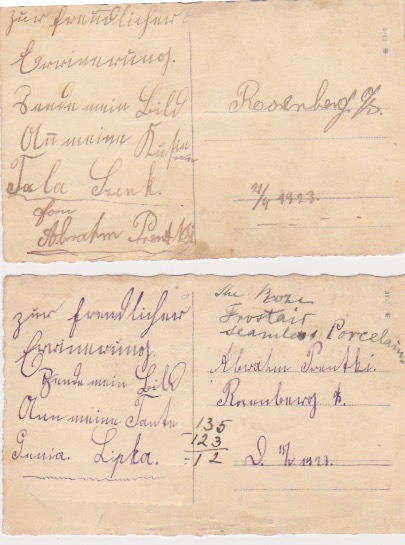 zur freudlicher
Errinerung.
Sende mein Bild
An meine Kusine
Tala Szenk.
fom
Abrahm Prentki
Rosenberg. O/S.
1923.
zur freudlicher
Errinerung.
Sende mein Bild
Ann meine Tante
Genia. Lipka.
The Rose
Frostair
seamless Porcelain
Abrahm Prentki.
Rosenberg
135
-123
-12
D. 1923.